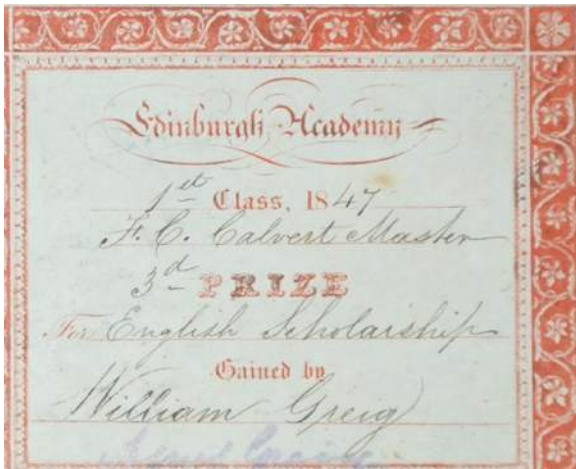 Edinburgh Academy
1st Class, 1847
F. C. Calvert Master
3d PRIZE
For English Scholarship
Gained by
William Greig